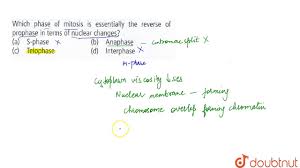 Which phase of mitosis is essentially the reverse of
prophase in terms of nuclear changes?
(a) S-phase X (b) Anaphase — centromere split X
(c) Telophase (d) Interphase X
M-phase
Cytoplasm viscosity loses
Nuclear membrane — forming
chromosome overlap forming chromatin
doubtnut